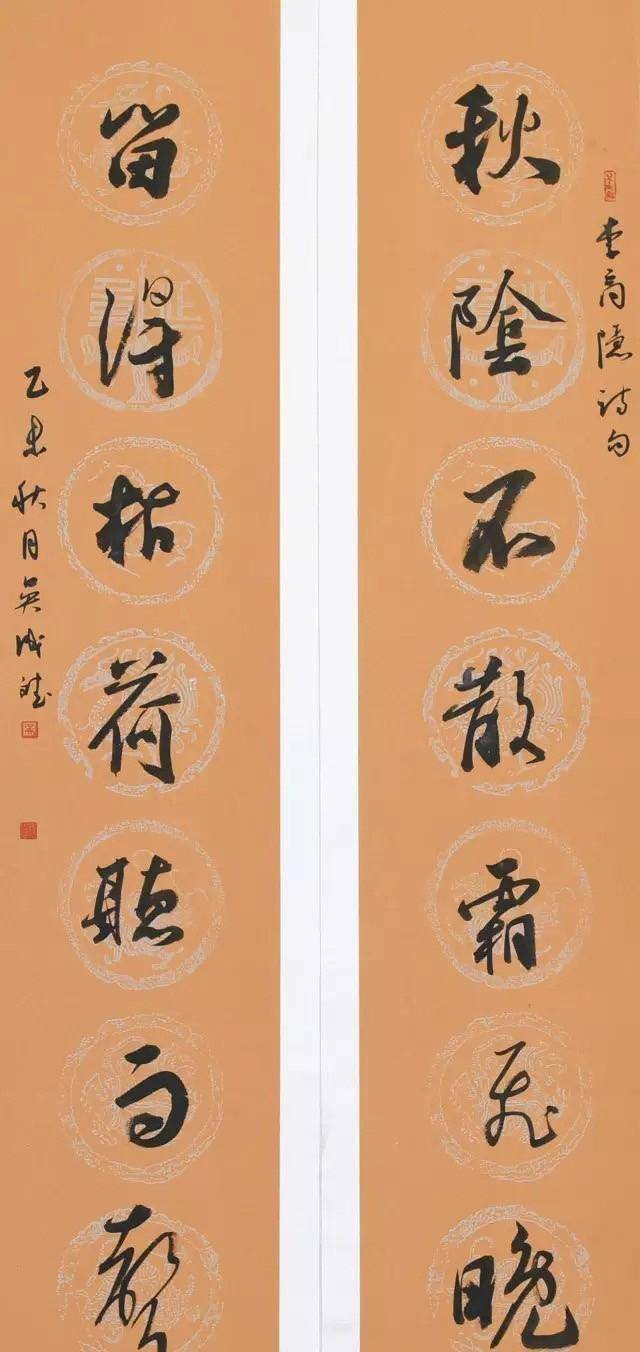 李商隱詩句
秋陰不散霜飛晚
留得枯荷聽雨聲
乙未秋月吳